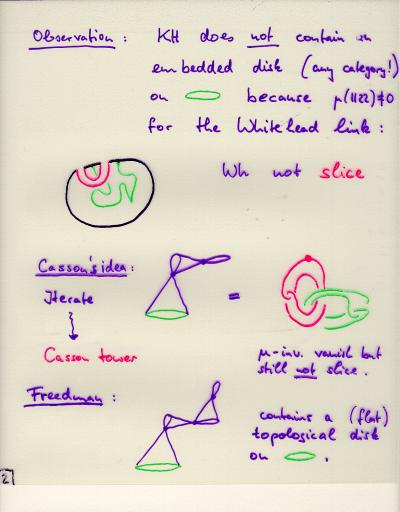 Observation : KH does not contain an
embedded disk (any category!)
on because μ(1122)≠0
for the Whitehead link :
Wh not slice
Casson's idea :
Iterate
=
Casson tower
μ-inv. vanish but
still not slice.
Freedman :
contains a (flat)
topological disk
on .
2